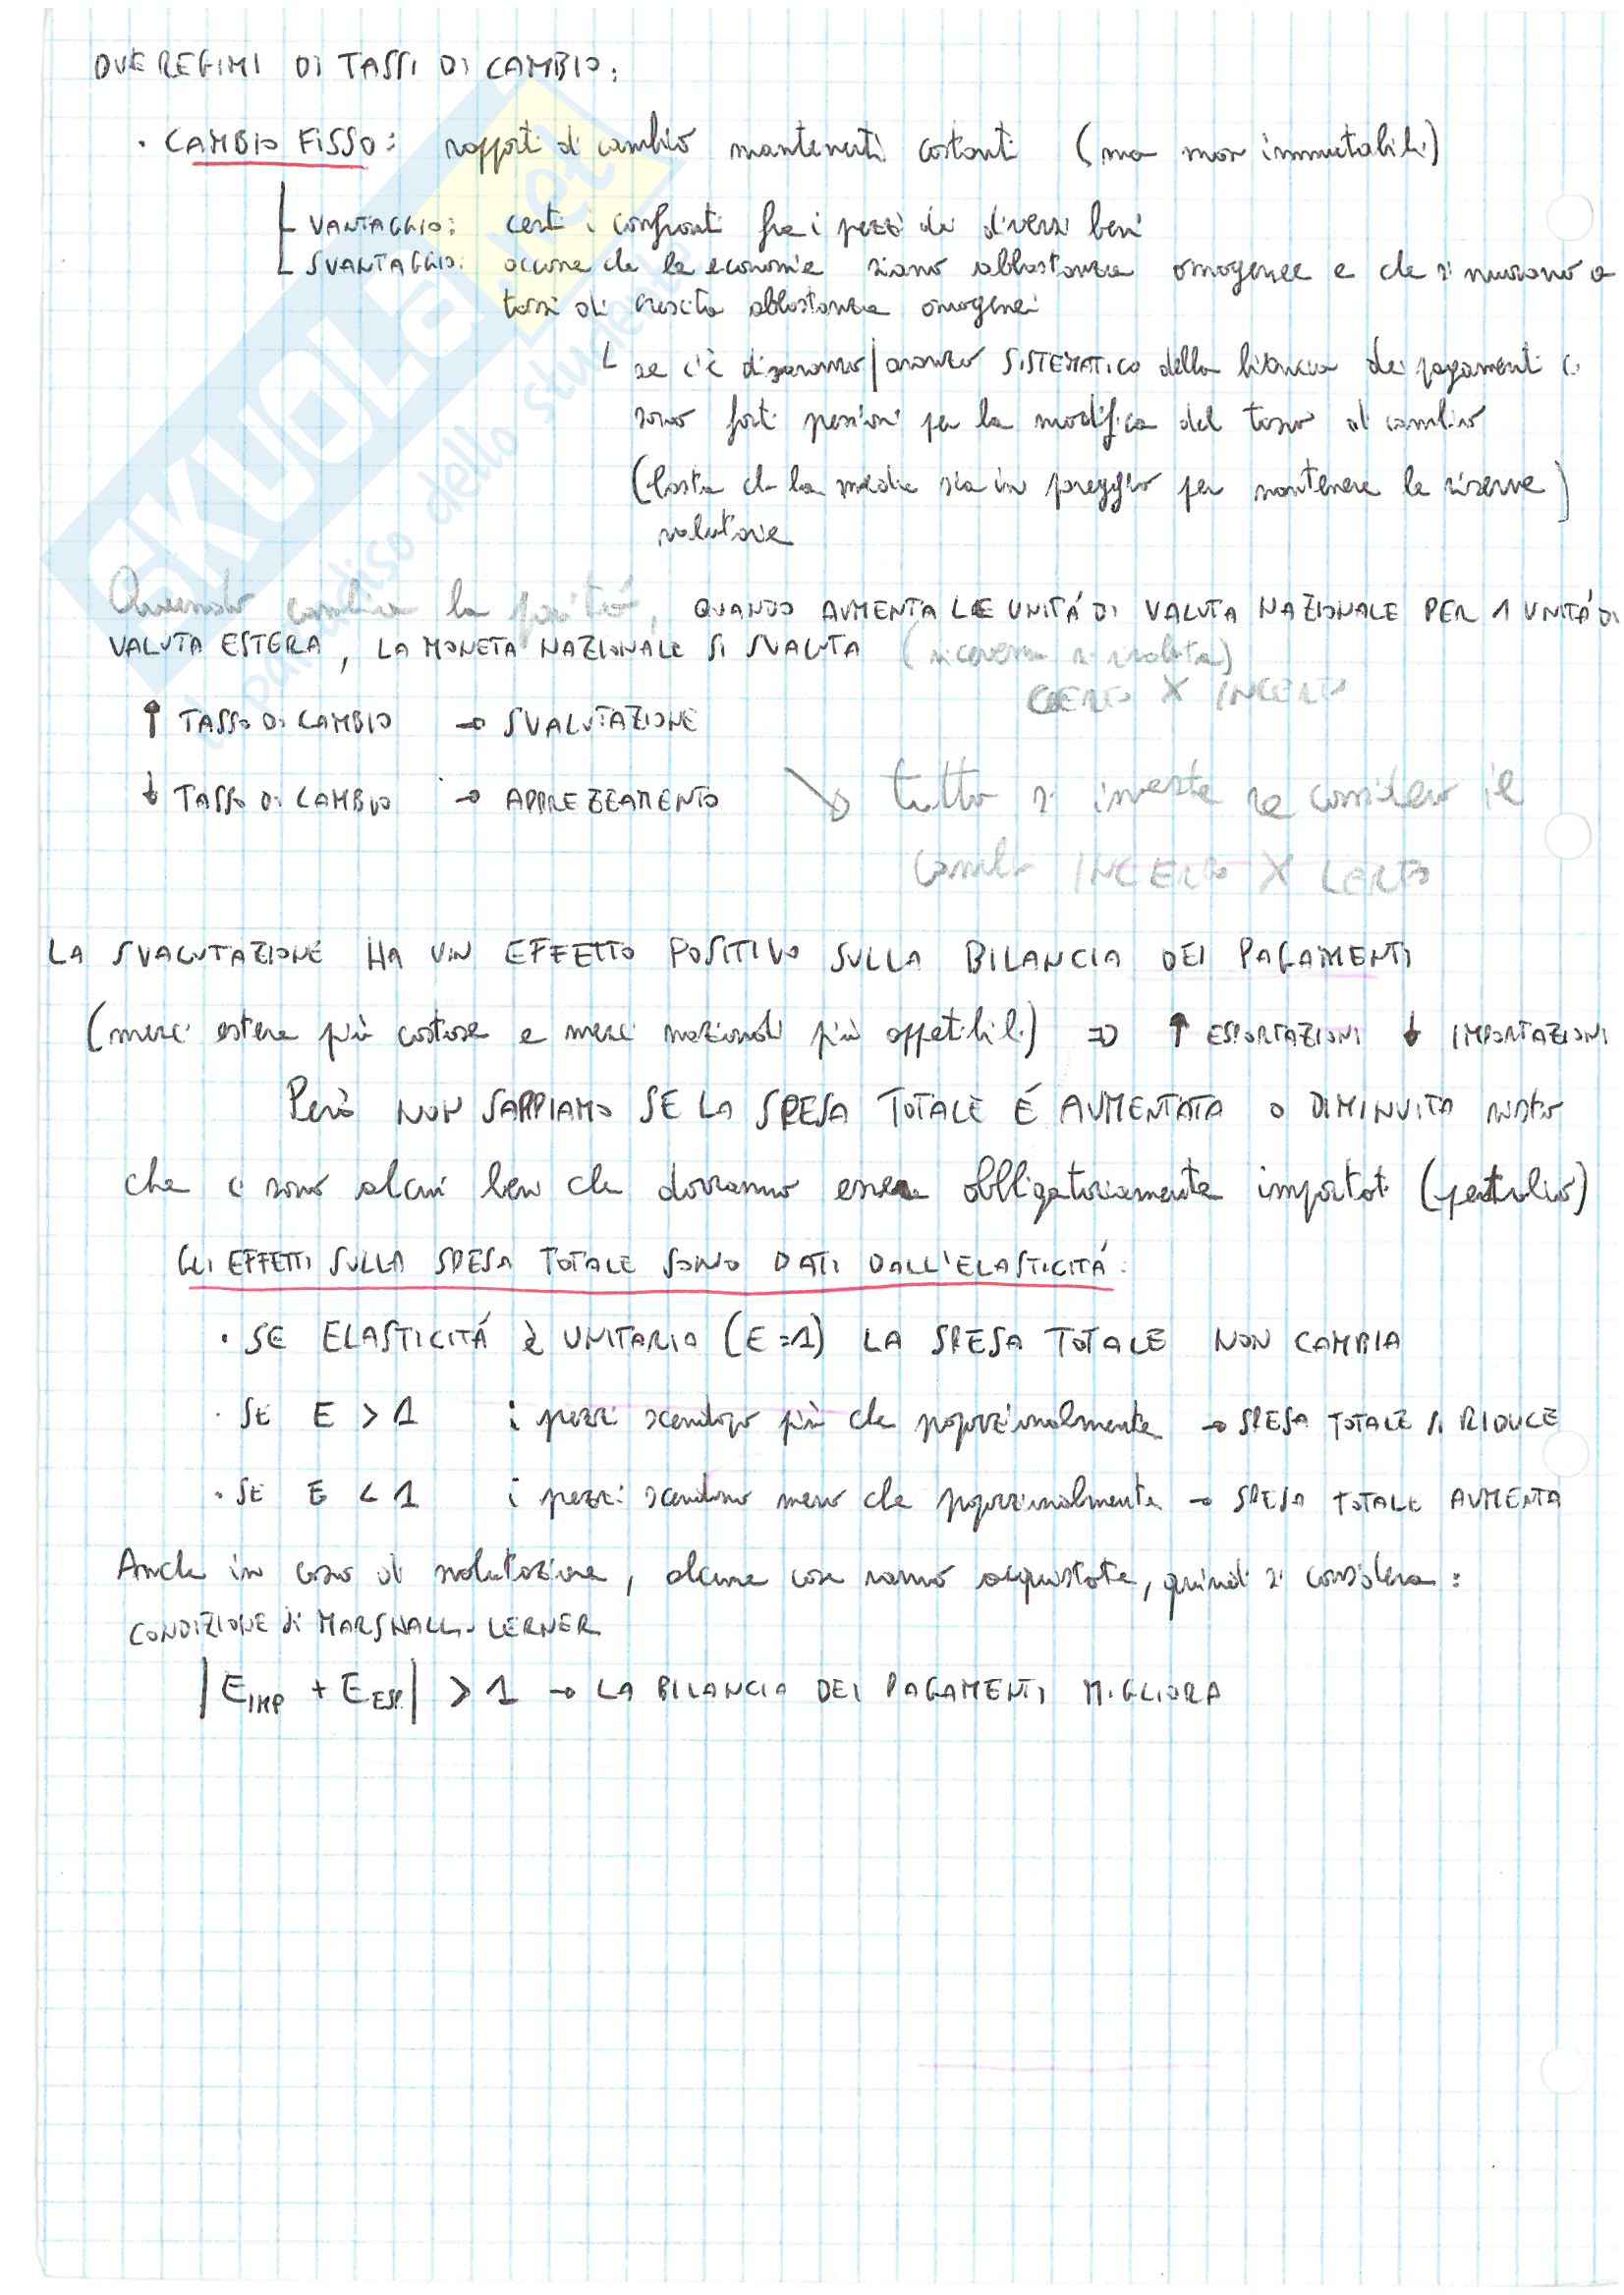 DUE REGIMI DI TASSI DI CAMBIO:
• CAMBIO FISSO: rapporti di cambio mantenuti costanti (ma non immutabili)
VANTAGGIO: certi i confronti fra i prezzi dei diversi beni
SVANTAGGIO: occorre che le economie siano abbastanza omogenee e che si muovano a
tassi di crescita abbastanza omogenei
se c'è disavanzo/avanzo SISTEMATICO della bilancia dei pagamenti ci
sono forti pressioni per la modifica del tasso di cambio
(basta che la media sia in pareggio per mantenere le riserve)
valutarie
Quando cambia la parità, QUANDO AUMENTA LE UNITÁ DI VALUTA NAZIONALE PER 1 UNITÁ DI
VALUTA ESTERA, LA MONETA NAZIONALE SI SVALUTA (viceversa si rivaluta)
CERTO X INCERTO
↑ TASSO DI CAMBIO → SVALUTAZIONE
↓ TASSO DI CAMBIO → APPREZZAMENTO
tutto si inverte se considero il
cambio INCERTO X CERTO
LA SVALUTAZIONE HA UN EFFETTO POSITIVO SULLA BILANCIA DEI PAGAMENTI
(merci estere più costose e merci nazionali più appetibili) ⇒ ↑ ESPORTAZIONI ↓ IMPORTAZIONI
Però NON SAPPIAMO SE LA SPESA TOTALE É AUMENTATA O DIMINUITA visto
che ci sono alcuni beni che dovranno essere obbligatoriamente importati (petrolio)
GLI EFFETTI SULLA SPESA TOTALE SONO DATI DALL'ELASTICITÁ:
• SE ELASTICITÁ è UNITARIA (E=1) LA SPESA TOTALE NON CAMBIA
• SE E > 1 i prezzi scendono più che proporzionalmente → SPESA TOTALE SI RIDUCE
• SE E < 1 i prezzi scendono meno che proporzionalmente → SPESA TOTALE AUMENTA
Anche in caso di svalutazione, alcune cose vanno acquistate, quindi si considera:
CONDIZIONE di MARSHALL-LERNER
|E IMP + E ESP| > 1 → LA BILANCIA DEI PAGAMENTI MIGLIORA
SKUOLA.net
il paradiso dello studente